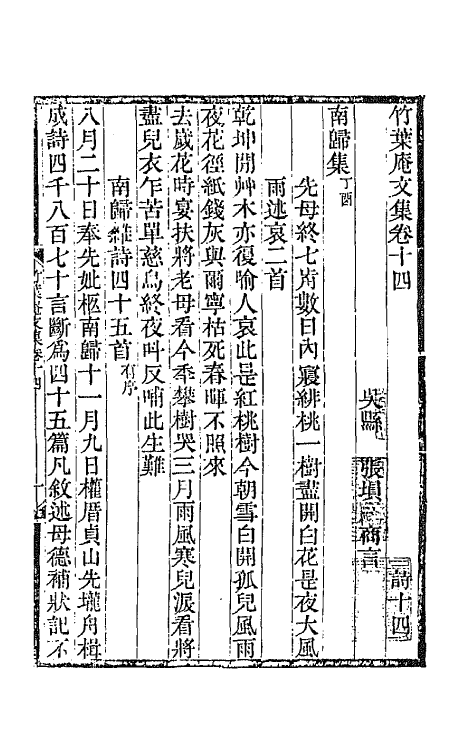 竹葉庵文集卷十四
吳縣 張塤 商言 詩十四
南歸集丁酉
先母終七歬數日內寢緋桃一樹盡開白花是夜大風
雨述哀二首
乾坤閒艸木亦復喻人哀此是紅桃樹今朝雪白開孤兒風雨
夜花徑紙錢灰與爾寧枯死春暉不照來
去歲花時宴扶將老母看今秊攀樹哭三月雨風寒兒淚看將
盡兒衣乍苦單慈烏終夜叫反哺此生難
南歸雜詩四十五首有序
八月二十日奉先妣柩南歸十一月九日權厝貞山先壠舟楫
成詩四千八百七十言斷爲四十五篇凡敘述母德補狀記不
竹葉庵文集卷十四 一